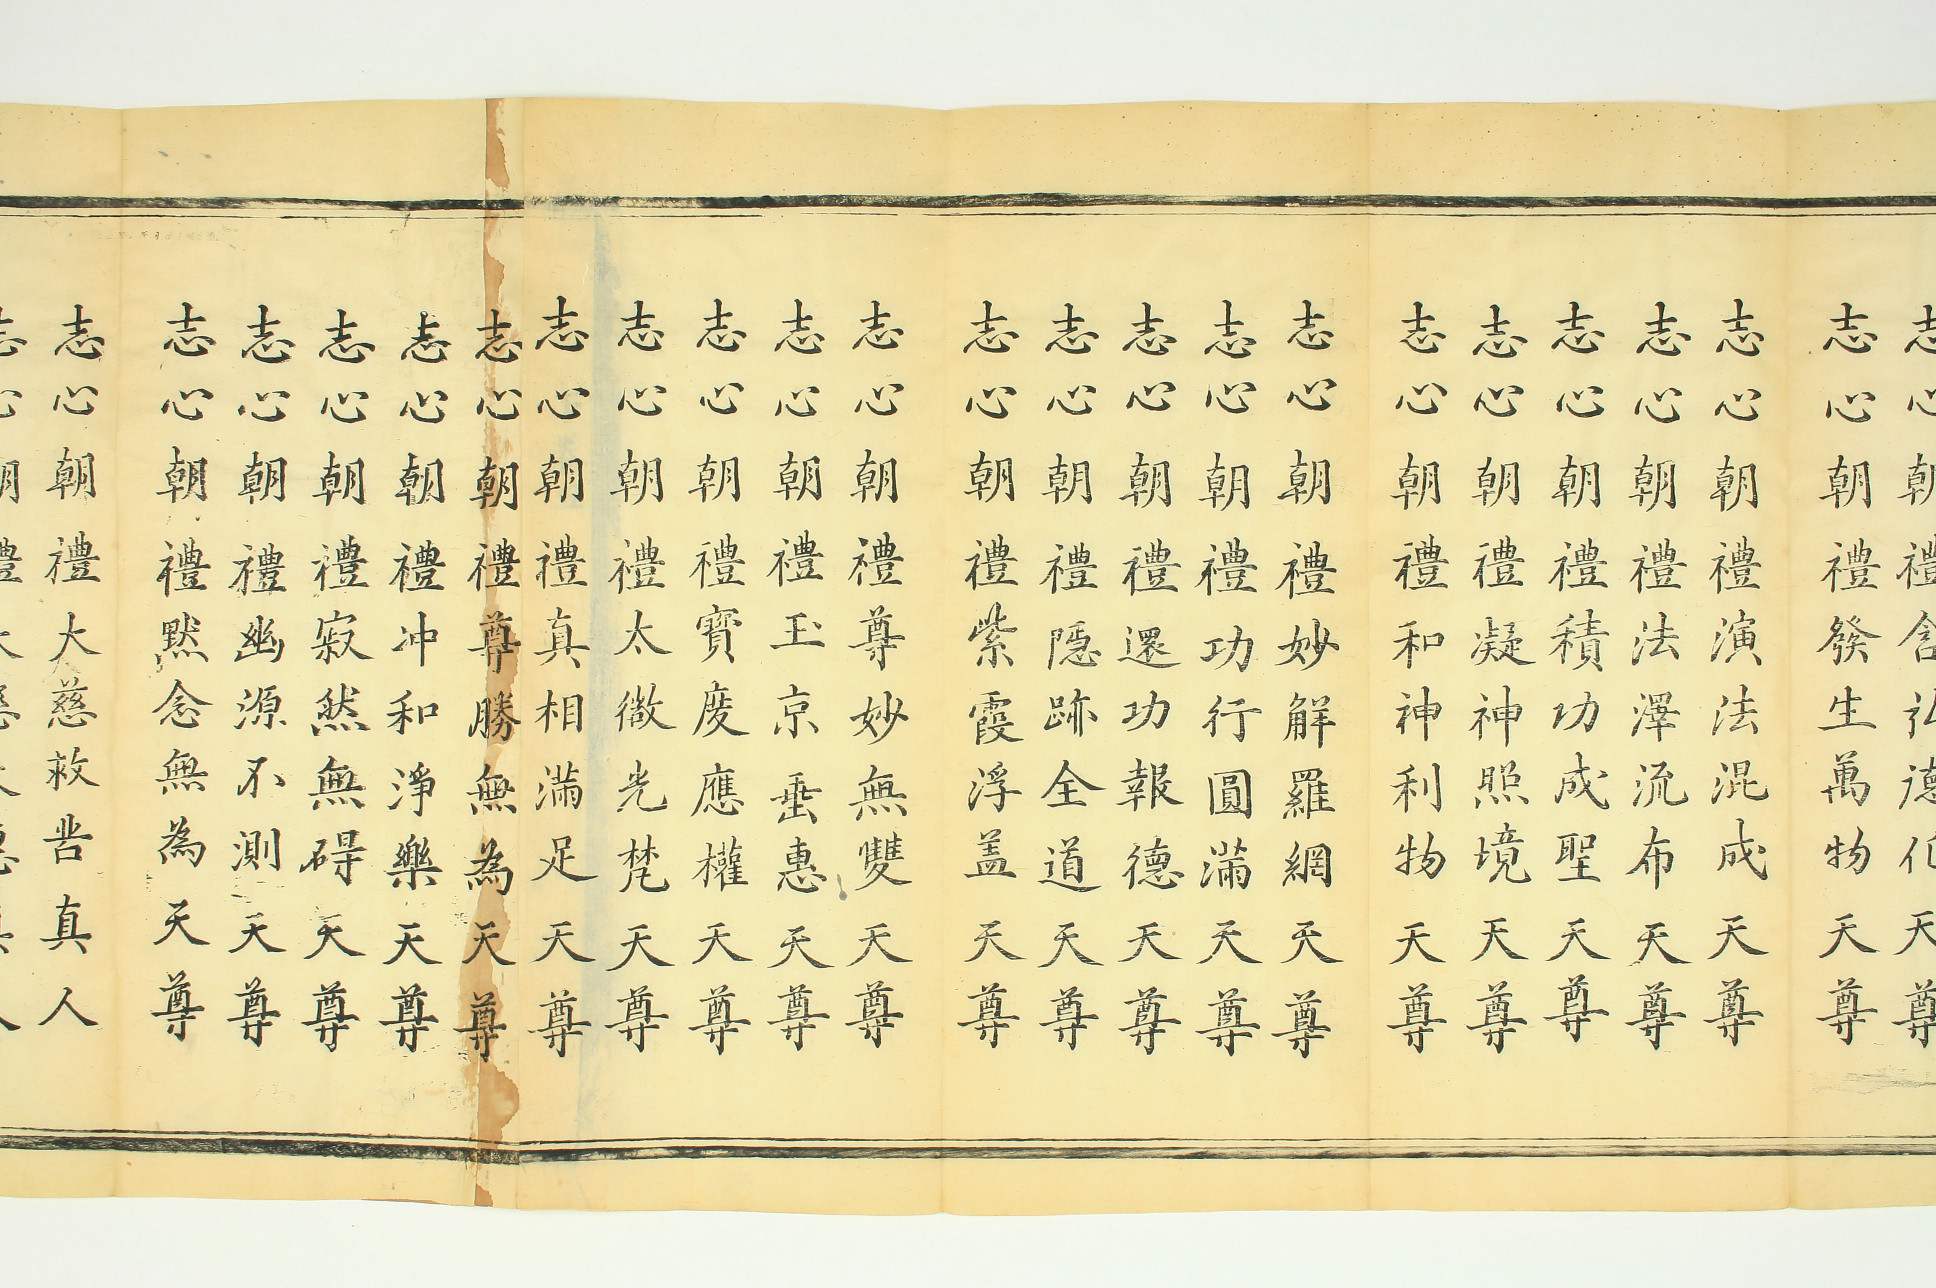 志心朝禮含弘德化天尊
志心朝禮發生萬物天尊
志心朝禮演法混成天尊
志心朝禮法澤流布天尊
志心朝禮積功成聖天尊
志心朝禮凝神照境天尊
志心朝禮和神利物天尊
志心朝禮妙解羅網天尊
志心朝禮功行圓滿天尊
志心朝禮還功報德天尊
志心朝禮隱跡全道天尊
志心朝禮紫霞浮蓋天尊
志心朝禮尊妙無雙天尊
志心朝禮玉京垂惠天尊
志心朝禮寶度應權天尊
志心朝禮太微光梵天尊
志心朝禮真相滿足天尊
志心朝禮尊勝無為天尊
志心朝禮冲和淨樂天尊
志心朝禮寂然無碍天尊
志心朝禮幽源不測天尊
志心朝禮默念無為天尊
志心朝禮大慈救苦真人